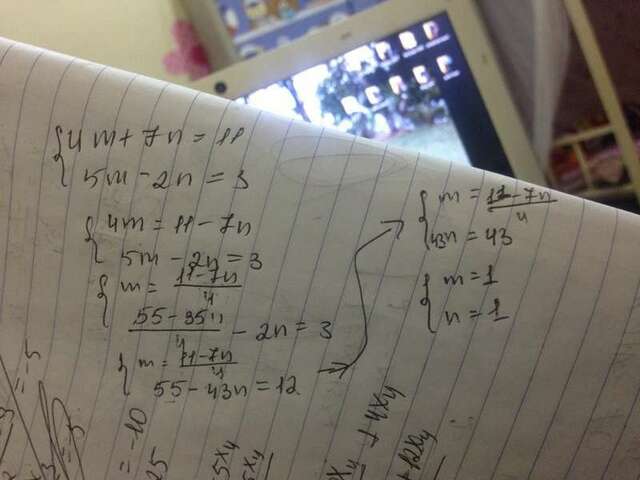 {4m + 7n = 11
5m - 2n = 3
{4m = 11 - 7n
5m - 2n = 3
{m = (11 - 7n)/4
(55 - 35n)/4 - 2n = 3
{m = (11 - 7n)/4
55 - 43n = 12 →
{m = (11 - 7n)/4
43n = 43
{m = 1
n = 1
= -5
= -5
= -10
25
5xy
5xy
xy + 4xy
+ 12xy